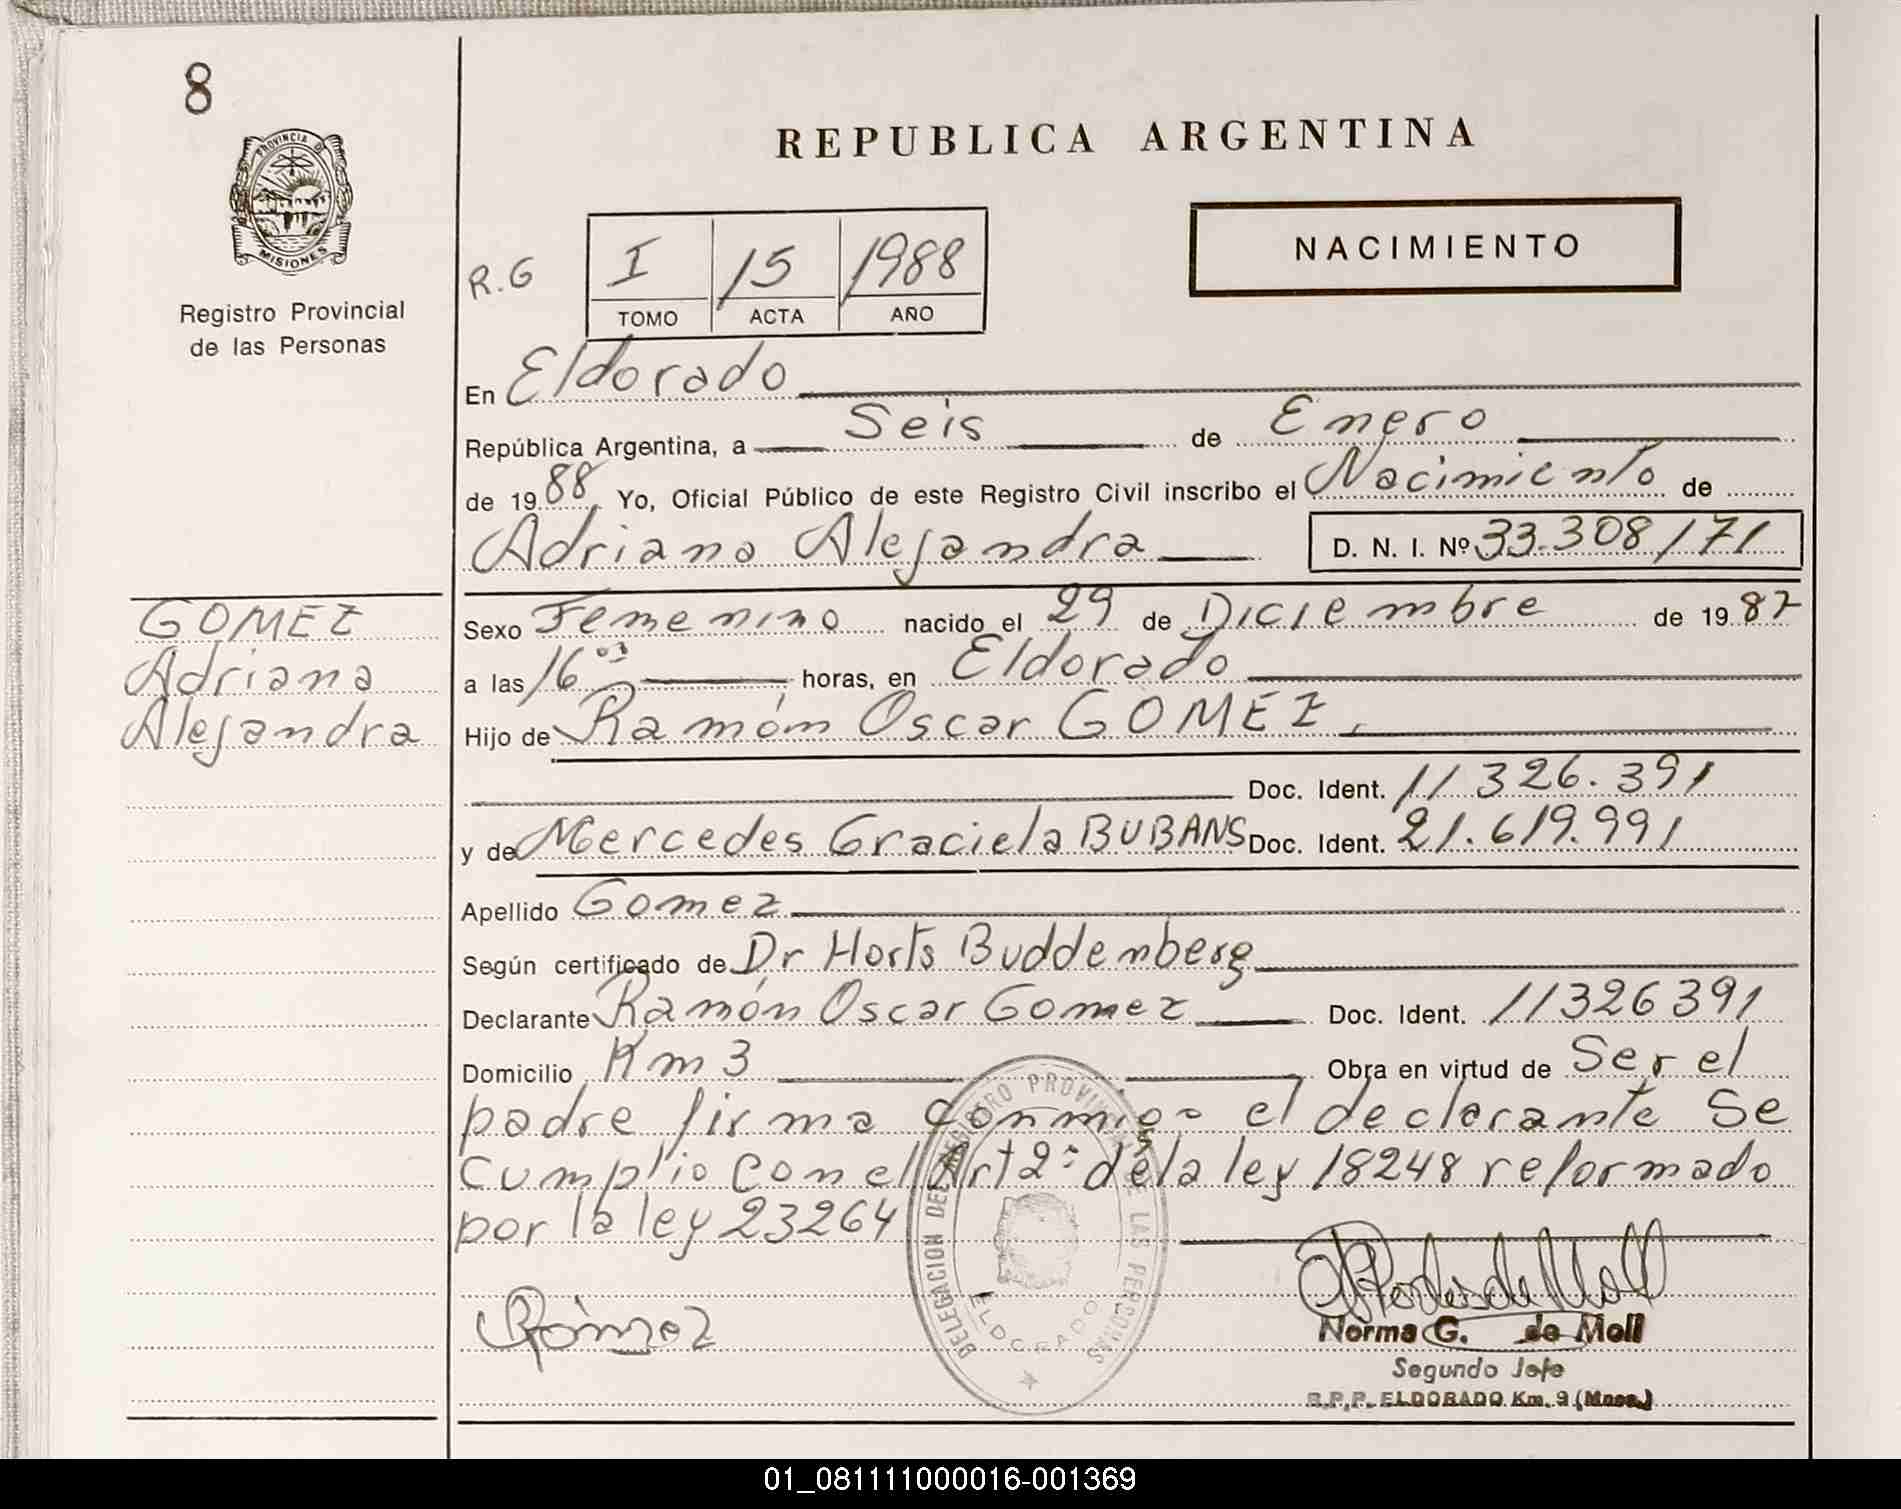 8
PROVINCIA DE
MISIONES
Registro Provincial
de las Personas
GOMEZ
Adriana
Alejandra
REPUBLICA ARGENTINA
NACIMIENTO
R.G
I 15 1988
TOMO ACTA AÑO
En Eldorado
República Argentina, a Seis de Enero
de 1988 Yo, Oficial Público de este Registro Civil inscribo el Nacimiento de
Adriana Alejandra D. N. I. Nº 33.308171
Sexo Femenino nacido el 29 de Diciembre de 1987
a las 16 horas, en Eldorado
Hijo de Ramón Oscar GOMEZ,
Doc. Ident. 11326.391
y de Mercedes Graciela BUBANS Doc. Ident. 21.619.991
Apellido Gomez
Según certificado de Dr Horts Buddemberg
Declarante Ramón Oscar Gomez Doc. Ident. 11326391
Domicilio Km 3 Obra en virtud de Ser el
padre firma conmigo el declarante Se
cumplio con el Art 2º de la ley 18248 reformado
por la ley 23264
DELEGACION DEL REGISTRO PROVINCIAL DE LAS PERSONAS
ELDORADO
Gómez
Norma G. de Moll
Segundo Jefe
R.P.P. ELDORADO Km. 9 (Mnes.)
01_081111000016-001369